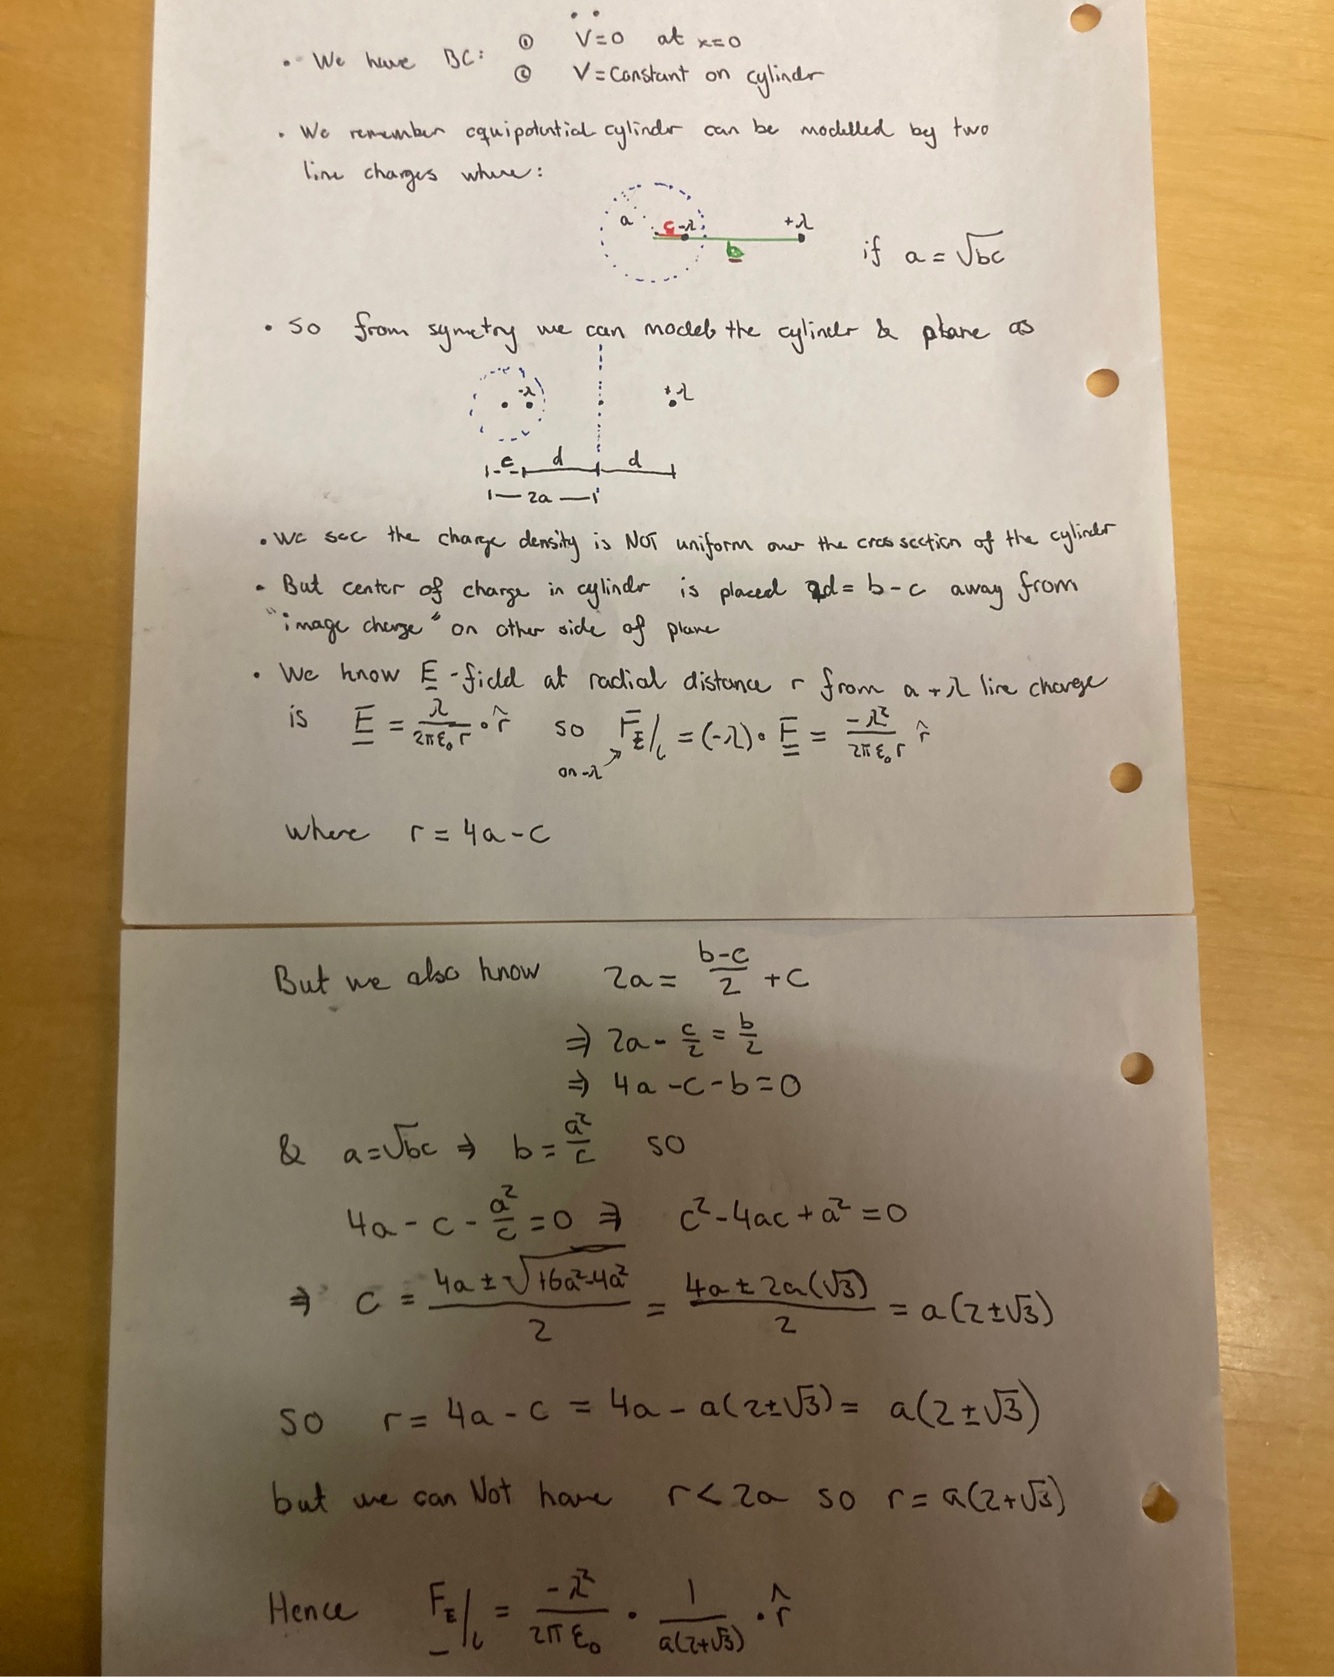 • We have BC: ① V=0 at x=0
② V=Constant on cylindr
• We remember equipotential cylindr can be modelled by two
line charges where:
a c -λ +λ
b
if a = √bc
• So from symetry we can model the cylindr & plane as
-λ +λ
c d d
2a
• We see the charge density is NOT uniform over the cross section of the cylindr
• But center of charge in cylindr is placed 2d = b-c away from
"image charge" on other side of plane
• We know E-field at radial distance r from a +λ line charge
is E = λ/(2πε₀r) · r̂ so F_E/L = (-λ)·E = -λ²/(2πε₀r) r̂
on -λ
where r = 4a - c
But we also know 2a = (b-c)/2 + c
⇒ 2a - c/2 = b/2
⇒ 4a - c - b = 0
& a = √bc ⇒ b = a²/c so
4a - c - a²/c = 0 ⇒ c² - 4ac + a² = 0
⇒ c = (4a ± √(16a²-4a²))/2 = (4a ± 2a(√3))/2 = a(2±√3)
so r = 4a - c = 4a - a(2±√3) = a(2±√3)
but we can Not have r < 2a so r = a(2+√3)
Hence F_E/L = -λ²/(2πε₀) · 1/(a(2+√3)) · r̂